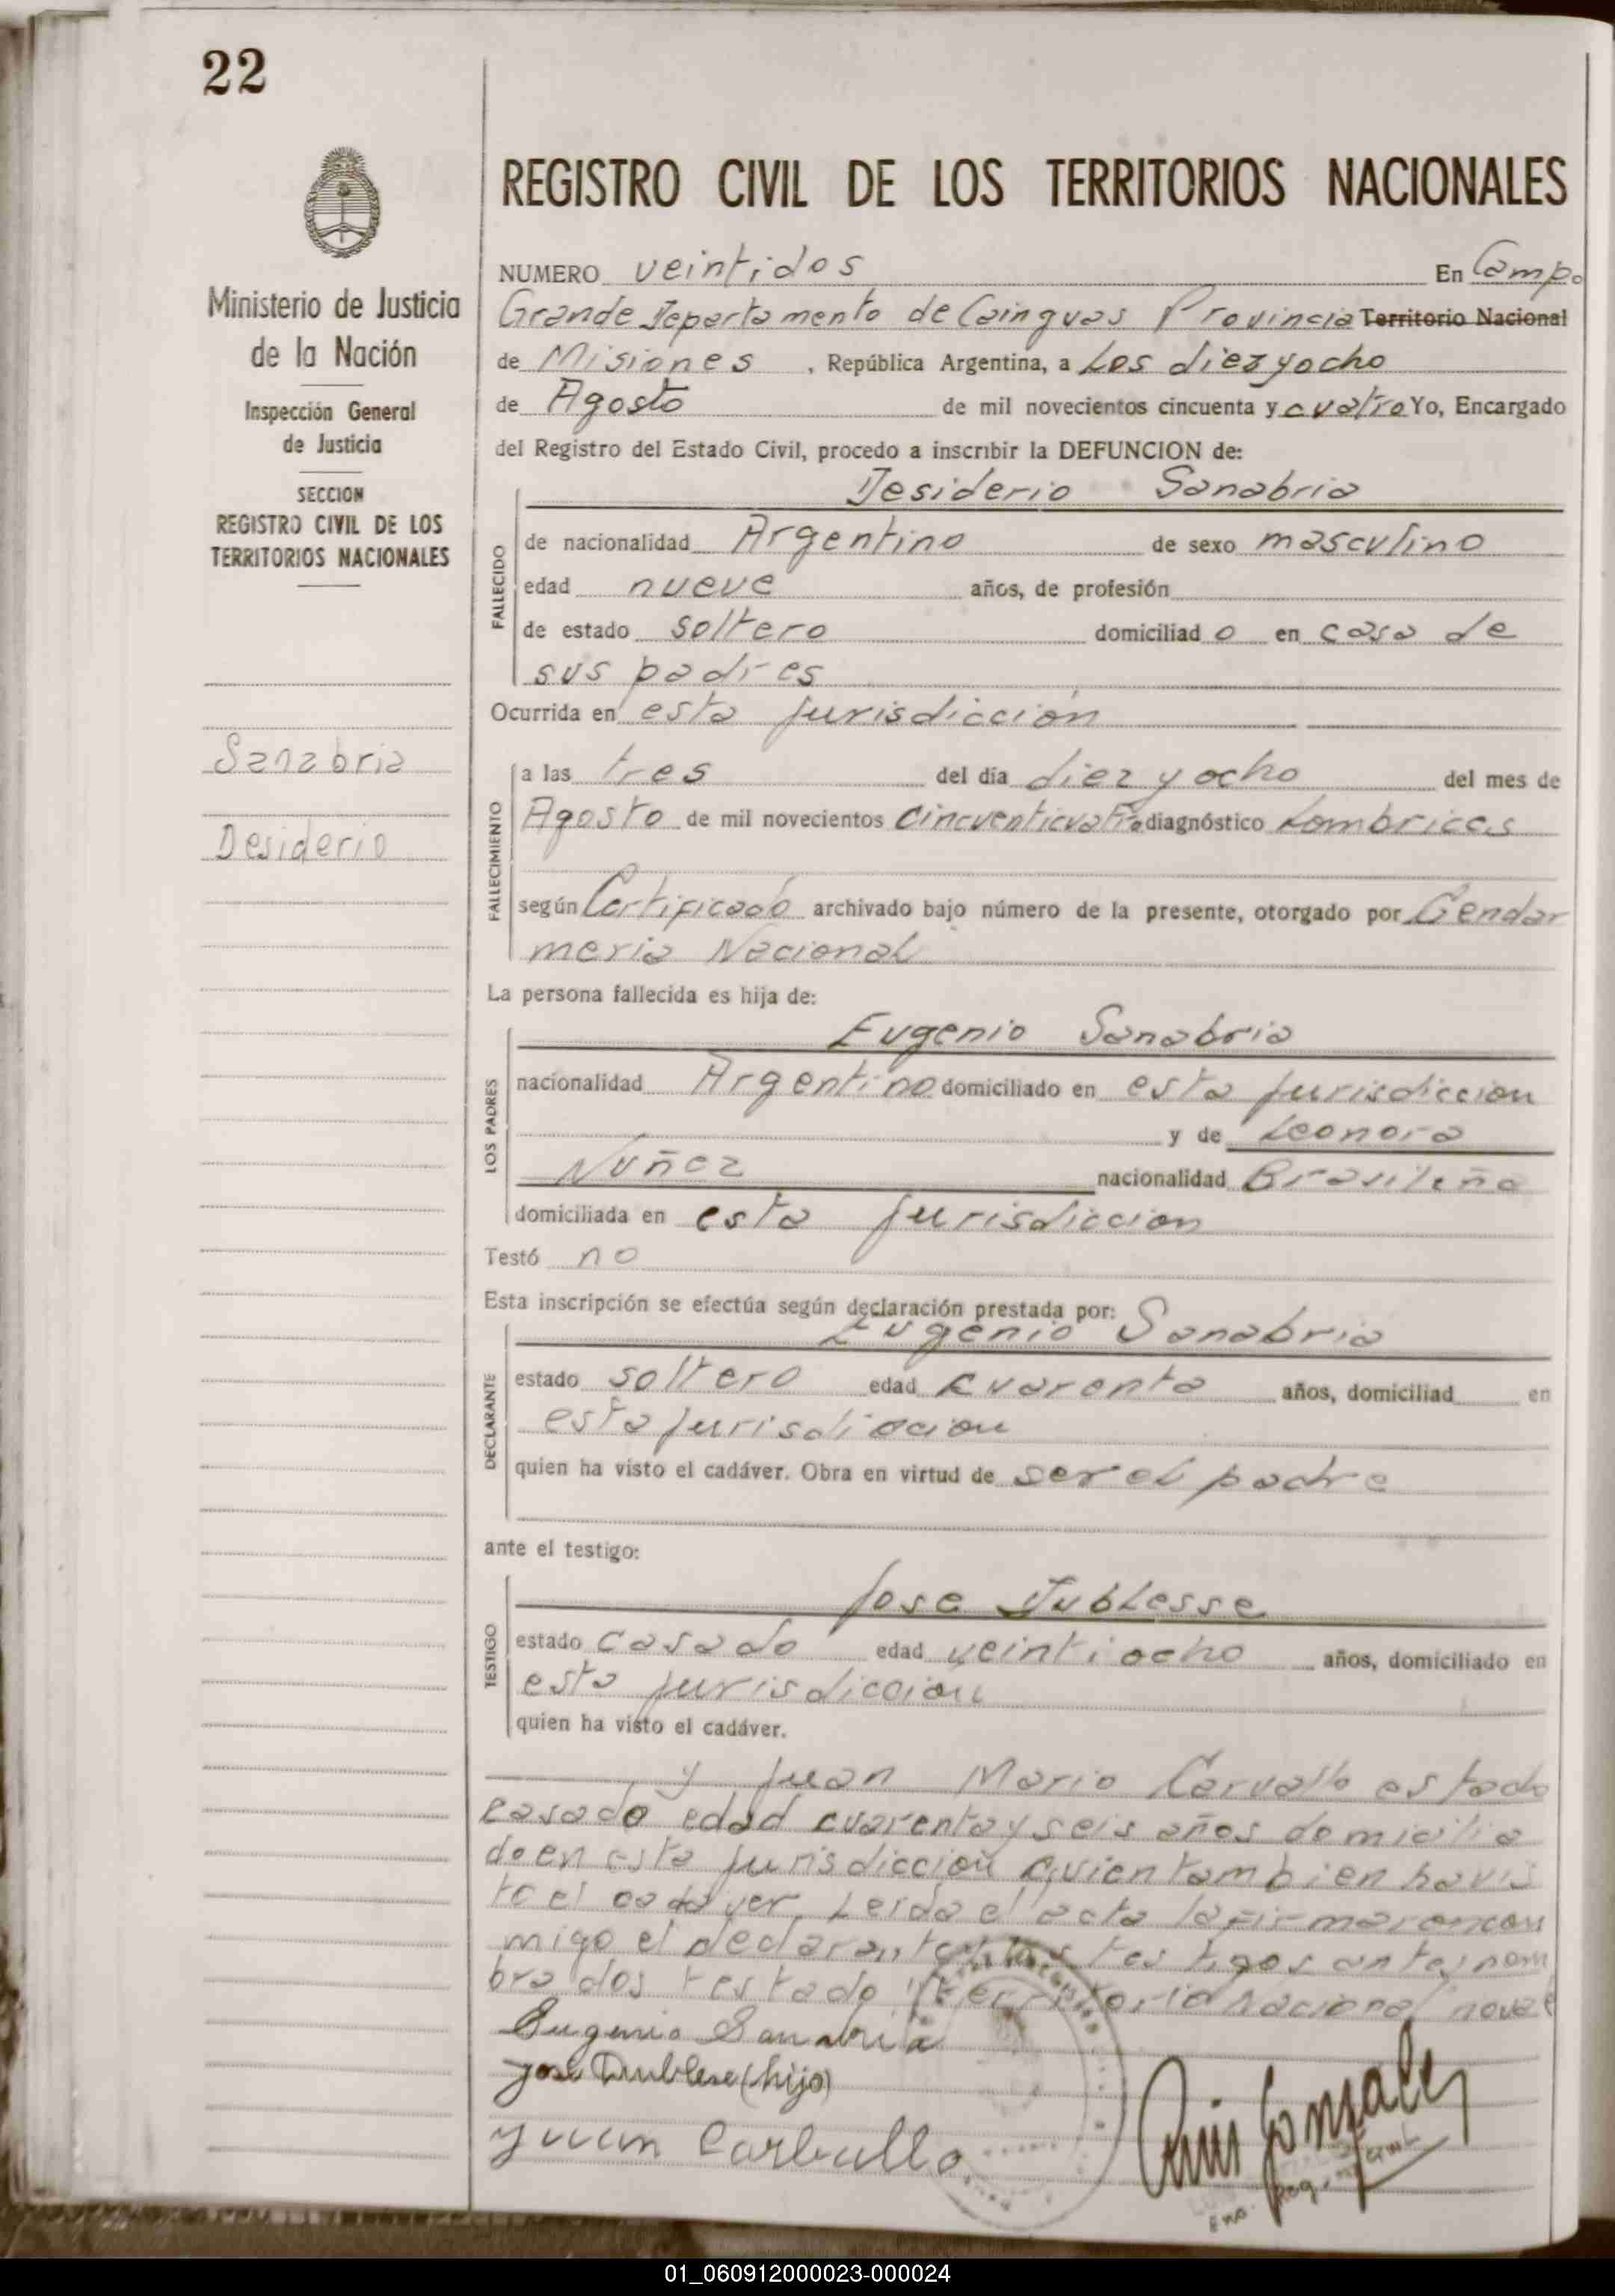 22
REGISTRO CIVIL DE LOS TERRITORIOS NACIONALES
Ministerio de Justicia
de la Nación
Inspección General
de Justicia
SECCION
REGISTRO CIVIL DE LOS
TERRITORIOS NACIONALES
Sanabria
Desiderio
NUMERO veintidos En Campo
Grande Departamento de Cainguas Provincia Territorio Nacional
de Misiones , República Argentina, a Los diez y ocho
de Agosto de mil novecientos cincuenta y cuatro Yo, Encargado
del Registro del Estado Civil, procedo a inscribir la DEFUNCION de:
Desiderio Sanabria
FALLECIDO
de nacionalidad Argentino de sexo masculino
edad nueve años, de profesión
de estado soltero domiciliad o en casa de
sus padres
Ocurrida en esta jurisdiccion
FALLECIMIENTO
a las tres del día diez y ocho del mes de
Agosto de mil novecientos cincuenticuatro diagnóstico Lombrices
según Certificado archivado bajo número de la presente, otorgado por Gendar
meria Nacional
La persona fallecida es hija de:
Eugenio Sanabria
LOS PADRES
nacionalidad Argentino domiciliado en esta jurisdiccion
y de Leonora
Nuñez nacionalidad Brasileña
domiciliada en esta jurisdiccion
Testó no
Esta inscripción se efectúa según declaración prestada por:
Eugenio Sanabria
DECLARANTE
estado soltero edad cuarenta años, domiciliad en
esta jurisdiccion
quien ha visto el cadáver. Obra en virtud de ser el padre
ante el testigo:
Jose Dublesse
TESTIGO
estado casado edad veintiocho años, domiciliado en
esta jurisdiccion
quien ha visto el cadáver.
y Juan Mario Carvallo estado
casado edad cuarenta y seis años domicilia
do en esta jurisdiccion quien tambien ha vis
to el cadaver. Leida el acta la firmaron con
migo el declarante y los testigos antes nom
brados testado "territorio Nacional" no vale
Eugenio Sanabria
José Dublese (hijo)
Juan Carballo
Luis Gonzalez
01_060912000023-000024